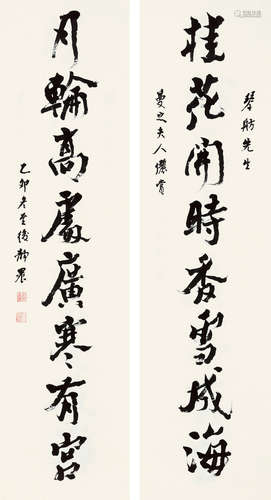 琴舫先生
曼之夫人儷賞
桂花開時香雪成海
月輪高處廣寒有宮
乙卯冬至後靜農